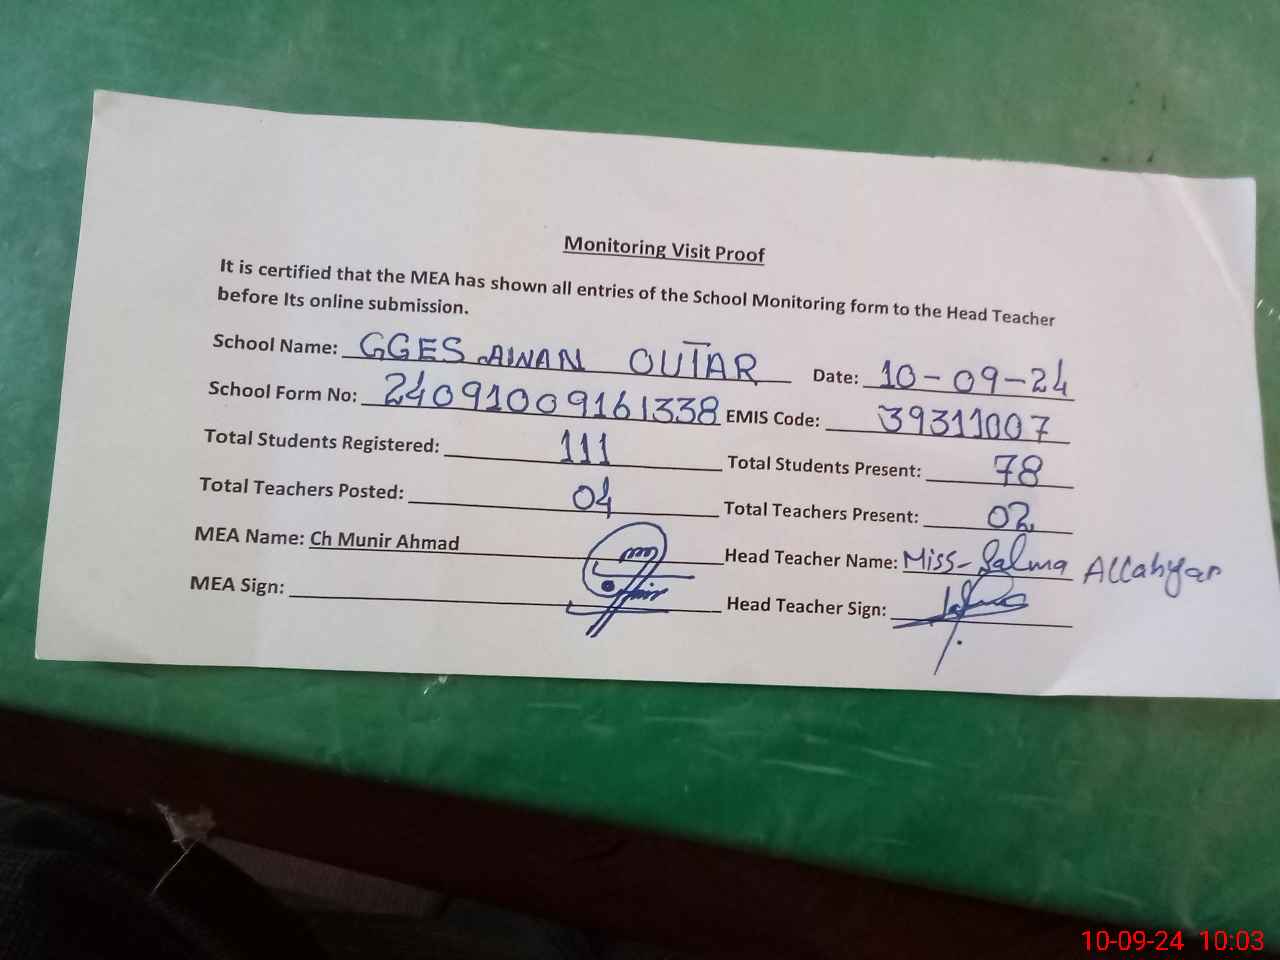 Monitoring Visit Proof
It is certified that the MEA has shown all entries of the School Monitoring form to the Head Teacher
before Its online submission.
School Name: GGES AWAN OUTAR Date: 10-09-24
School Form No: 24091009161338 EMIS Code: 39311007
Total Students Registered: 111 Total Students Present: 78
Total Teachers Posted: 04 Total Teachers Present: 02
MEA Name: Ch Munir Ahmad Head Teacher Name: Miss-Salma Allahyar
MEA Sign: Head Teacher Sign:
10-09-24 10:03